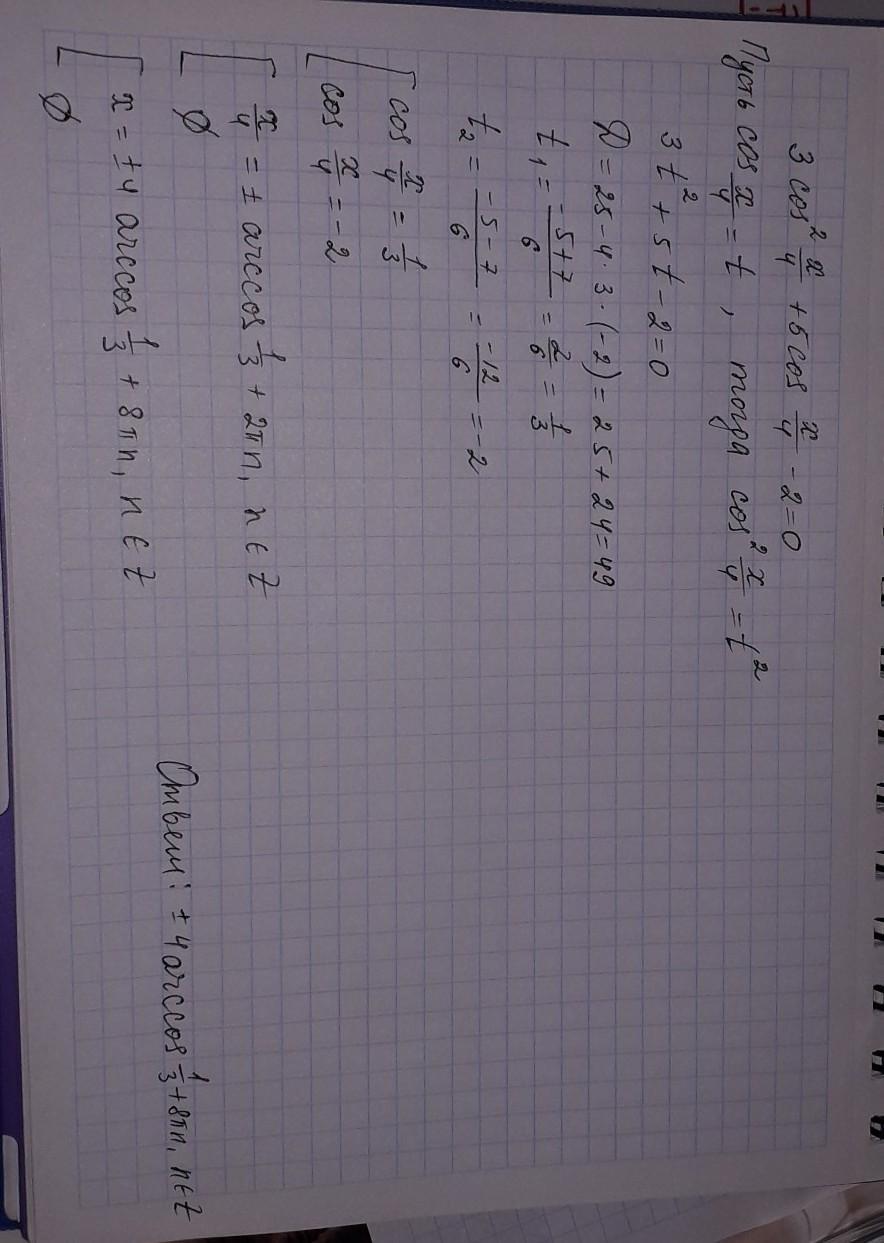 3 cos² x/4 + 5 cos x/4 - 2 = 0
Пусть cos x/4 = t, тогда cos² x/4 = t²
3t² + 5t - 2 = 0
D = 25 - 4 · 3 · (-2) = 25 + 24 = 49
t₁ = (-5+7)/6 = 2/6 = 1/3
t₂ = (-5-7)/6 = -12/6 = -2
[ cos x/4 = 1/3
cos x/4 = -2
[ x/4 = ± arccos 1/3 + 2πn, n ∈ Z
∅
[ x = ±4 arccos 1/3 + 8πn, n ∈ Z
∅
Ответ: ± 4 arccos 1/3 + 8πn, n ∈ Z